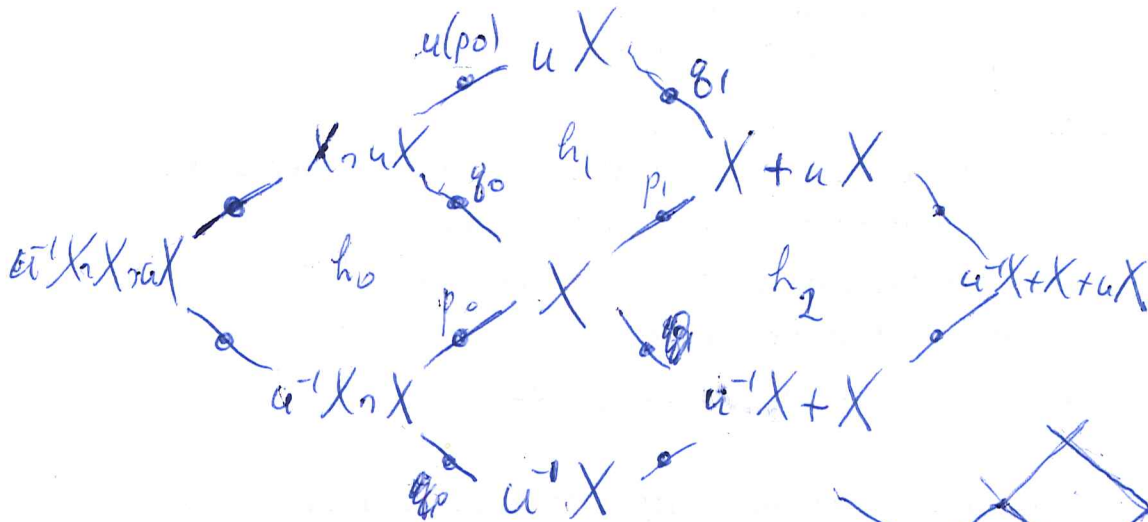 u(p0) uX q1
X∩uX q0 h1 p1 X+uX
u⁻¹X∩X∩uX h0 p0 X h2 u⁻¹X+X+uX
u⁻¹X∩X u⁻¹X+X
u⁻¹X